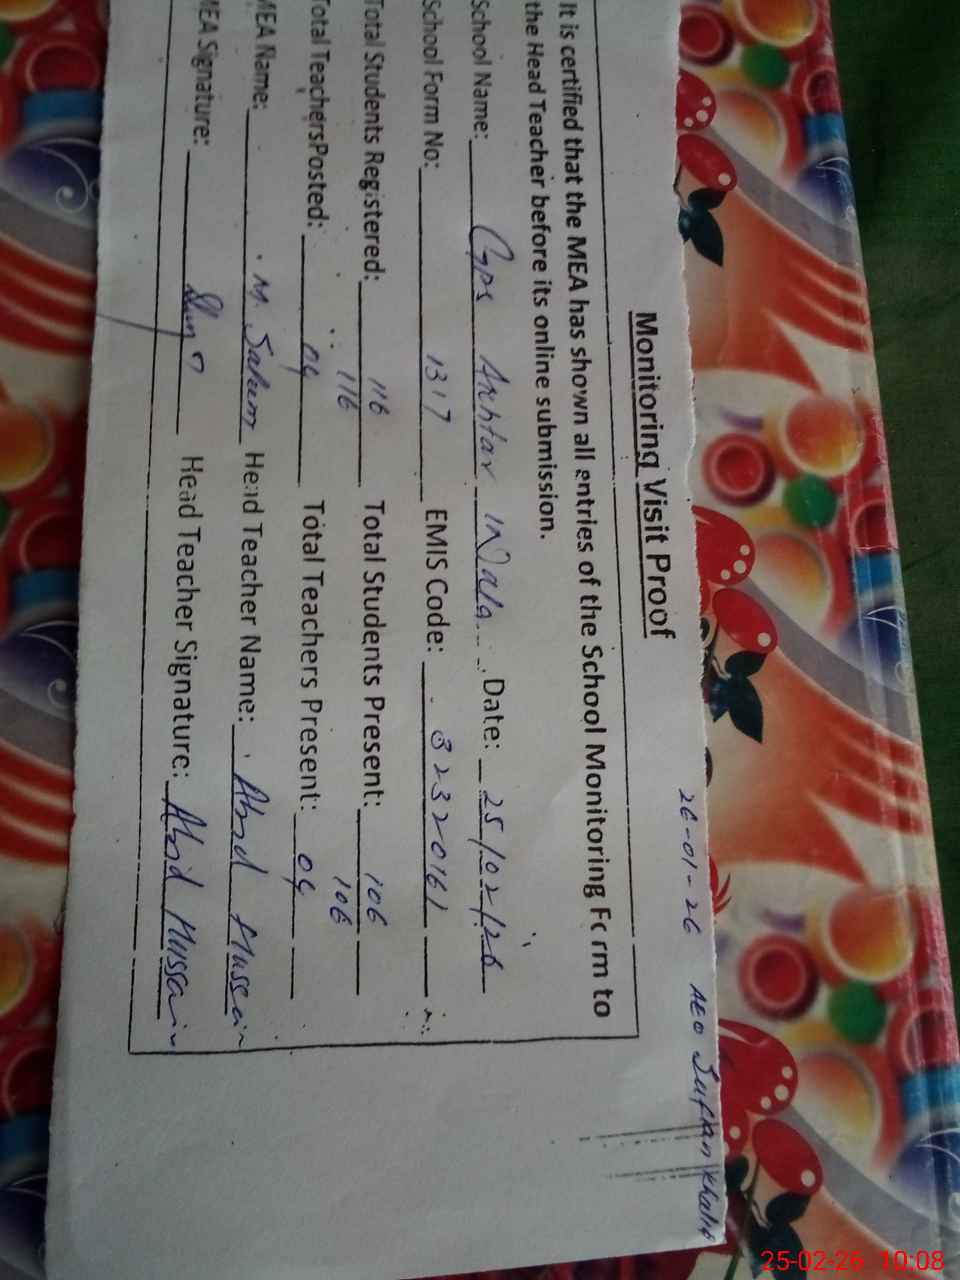 26-01-26 AEO Sufian Khalid
Monitoring Visit Proof
It is certified that the MEA has shown all entries of the School Monitoring Form to
the Head Teacher before its online submission.
School Name: Gps Akhtar Wala Date: 25/02/26
School Form No: 1317 EMIS Code: 32320161
Total Students Registered: 116 Total Students Present: 106
116 106
Total Teachers Posted: 04 Total Teachers Present: 04
MEA Name: M. Saleem Head Teacher Name: Abid Hussain
MEA Signature: Head Teacher Signature: Abid Hussain
25-02-26 10:08